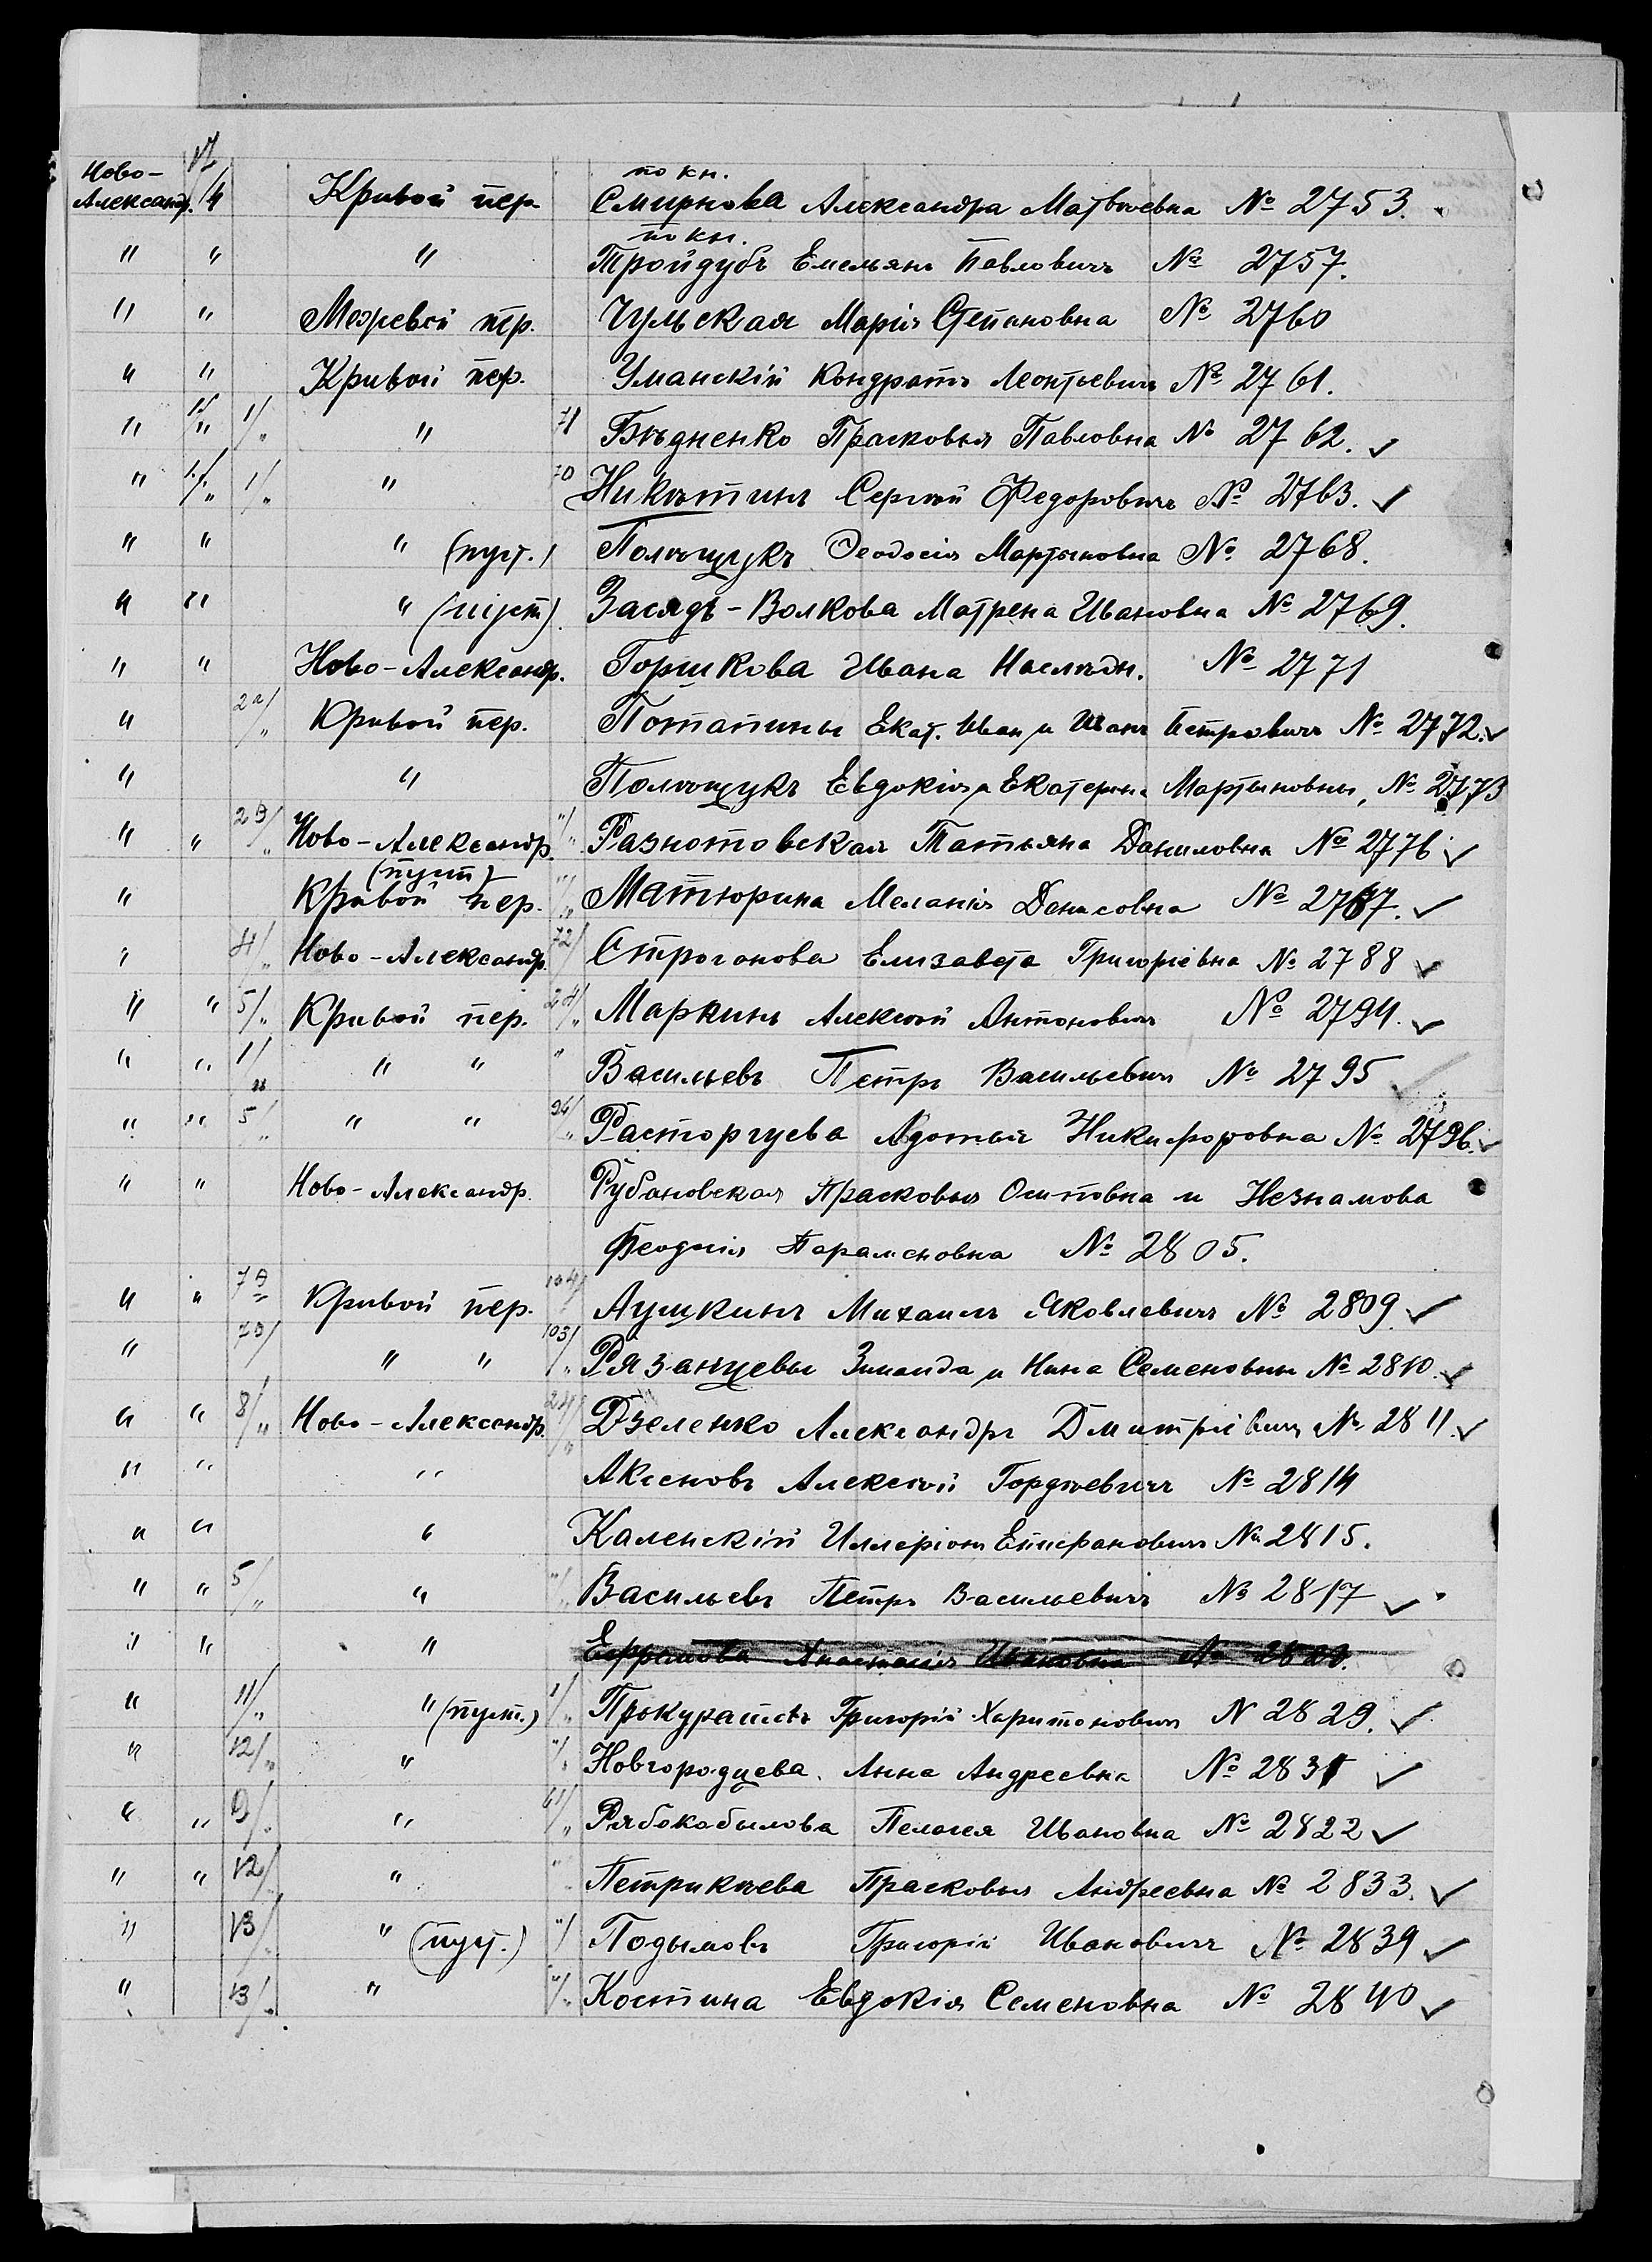 по кн.
Ново-Александр. 17/4 Кривой пер. Смирнова Александра Матвѣевна № 2753.
по кн.
" " " Тройдубъ Емельянъ Павловичъ № 2757.
" " Межевой пер. Чульская Марія Степановна № 2760
" " Кривой пер. Уманскій Кондратъ Леонтьевичъ № 2761.
" " 1/" " 71 Бѣдненко Прасковья Павловна № 2762. ✓
" " 1/" " 70 Никитинъ Сергѣй Федоровичъ № 2763. ✓
" " " (пуст.) Полѣщукъ Ѳеодосія Мартыновна № 2768.
" " " (пуст). Засядь-Волкова Матрена Ивановна № 2769.
" " Ново-Александр. Горшкова Ивана Наслѣдн. № 2771
" 2а/" Кривой пер. Потапины Екат. Иван и Иванъ Петровичъ № 2772. ✓
" " Полѣщукъ Евдокія и Екатерина Мартыновны, № 2773
" " 2В/" Ново-Александр. "/" Разнотовская Татьяна Даниловна № 2776 ✓
(пуст)
" Кривой пер. "/" Матюрина Меланія Денисовна № 2787. ✓
" 4/" Ново-Александр. 72/ Строганова Елизавета Григорьевна № 2788 ✓
" " 5/" Кривой пер. 24/" Маркинъ Алексѣй Антоновичъ № 2794. ✓
" " 1/" " " " Васильевъ Петръ Васильевичъ № 2795 ✓
" " 5/" " " 94/" Расторгуева Авдотья Никифоровна № 2796. ✓
" " Ново-Александр. Рубановская Прасковья Осиповна и Незнамова
Феодосія Парамоновна № 2805.
" " 7В Кривой пер. 104/ Аушкинъ Михаилъ Яковлевичъ № 2809 ✓
" 7В/ " " 103/" Рязанцевы Зинаида и Нина Семеновны № 2810. ✓
" " 8/" Ново-Александр. 24/" Дзеленко Александръ Дмитріевичъ № 2811. ✓
" " " Аксеновъ Алексѣй Гордѣевичъ № 2814
" " " Каленскій Илларіонъ Епифановичъ № 2815.
" " 5/" " "/" Васильевъ Петръ Васильевичъ № 2817 ✓
" " " Ефрамова Анастасія Ивановна №
" 11/" " (пуст.) 1/" Прокуратовъ Григорій Харитоновичъ N 2829. ✓
" 12/" " "/" Новгородцева Анна Андреевна № 2831 ✓
" " 9/" " 61/" Рябокобылова Пелагея Ивановна № 2822 ✓
" " 12/ " " Петрикѣева Прасковья Андреевна № 2833. ✓
" 13/ " (пуст.) "/ Подымовъ Григорій Ивановичъ № 2839 ✓
" 13/" " "/" Костина Евдокія Семеновна № 2840 ✓